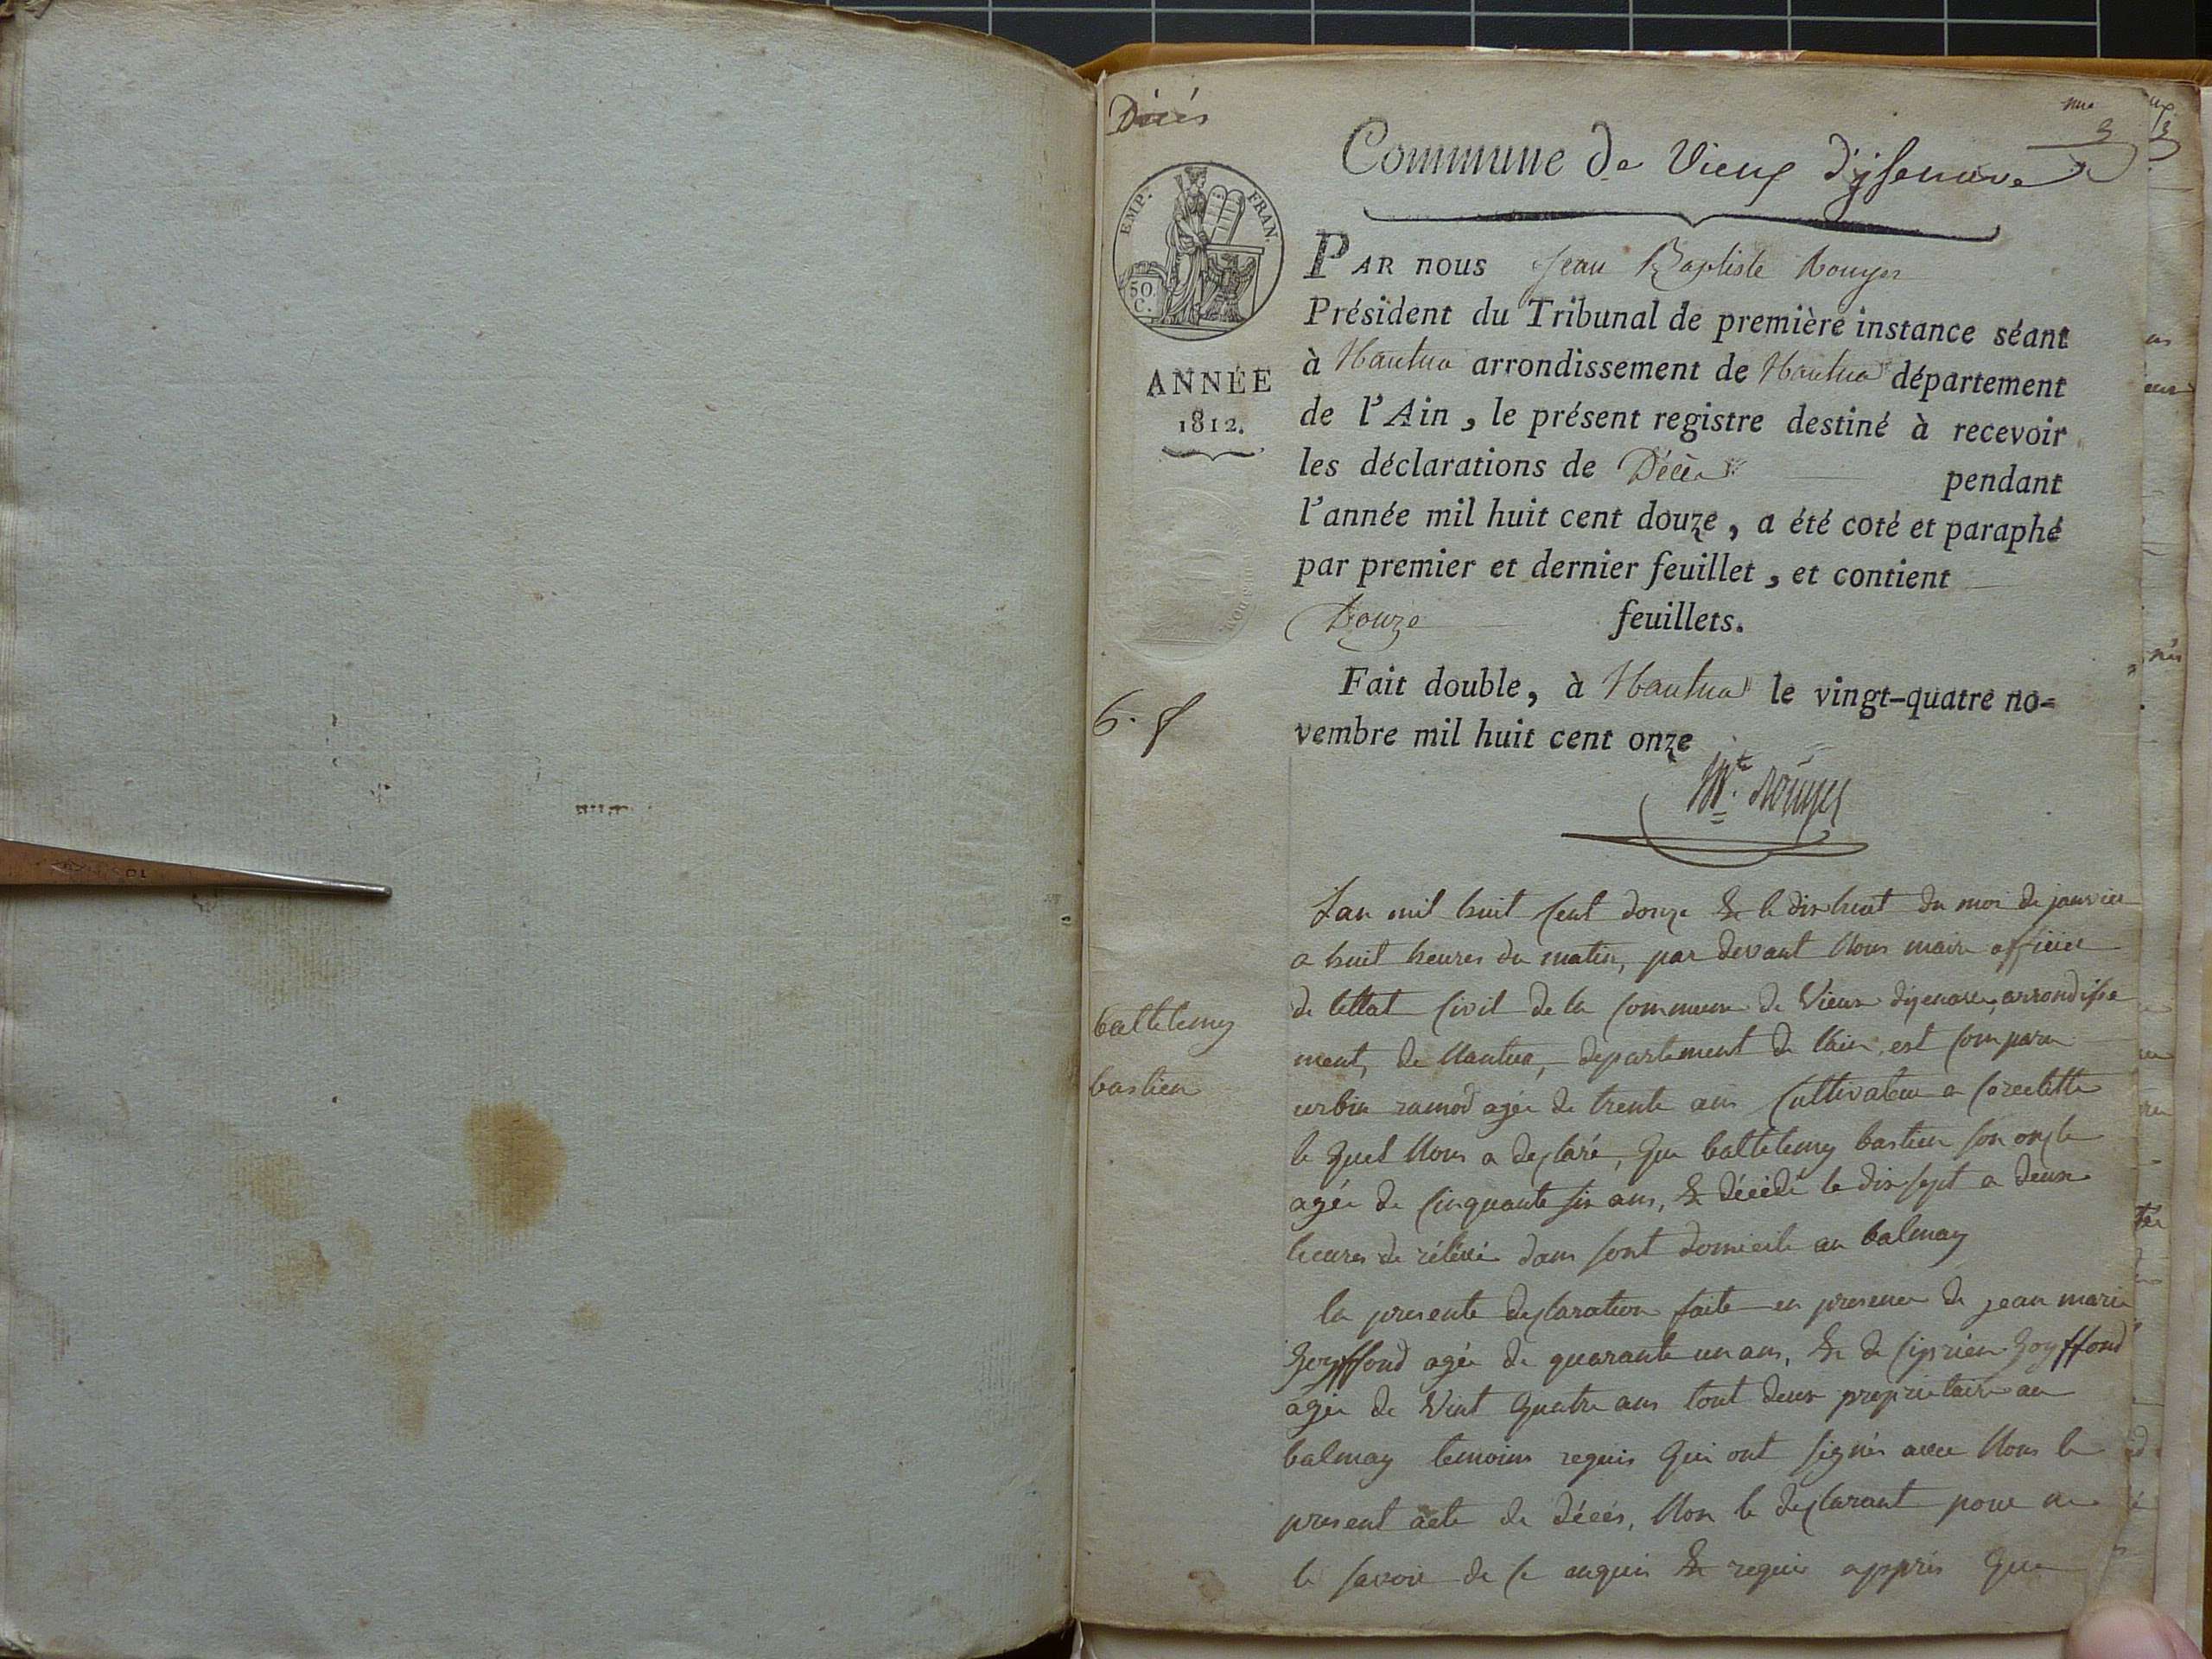 Décès
Commune de Vieux d'ysenave
EMP. FRAN.
50.
C.
ANNÉE
1812.
PAR nous Jean Baptiste Rouyer
Président du Tribunal de première instance séant
à Nantua arrondissement de Nantua département
de l'Ain, le présent registre destiné à recevoir
les déclarations de Décès pendant
l'année mil huit cent douze, a été coté et paraphé
par premier et dernier feuillet, et contient
Douze feuillets.
Fait double, à Nantua le vingt-quatre no=
vembre mil huit cent onze
Rouyer
6. f
baltelemy
bastien
Lan mil huit cent douze & le dix huit du moi de janvier
a huit heures du matin, par devant Nous maire officier
de lettat Civil de la Commune de Vieux dizenave, arrondisse
ment, de Nantua, departement de lain, est Comparu
urbin ramod agée de trente ans Cultivateur a Corcelette
le quel Nous a declaré, que baltelemy bastien son oncle
agée de Cinquante six ans, & décédé le dix sept a deux
heures de rélévé dans sont domicile au balmay
la presente declaration faite en presence de jean marie
goyffond agée de quarante un ans, & de Ciprien goyffond
agée de Vint quatre ans tout deux proprietaire au
balmay temoins requis qui ont signés avec Nous le
present acte de décés, Non le declarant pour ne
le savoir de ce enquis & requis appris que